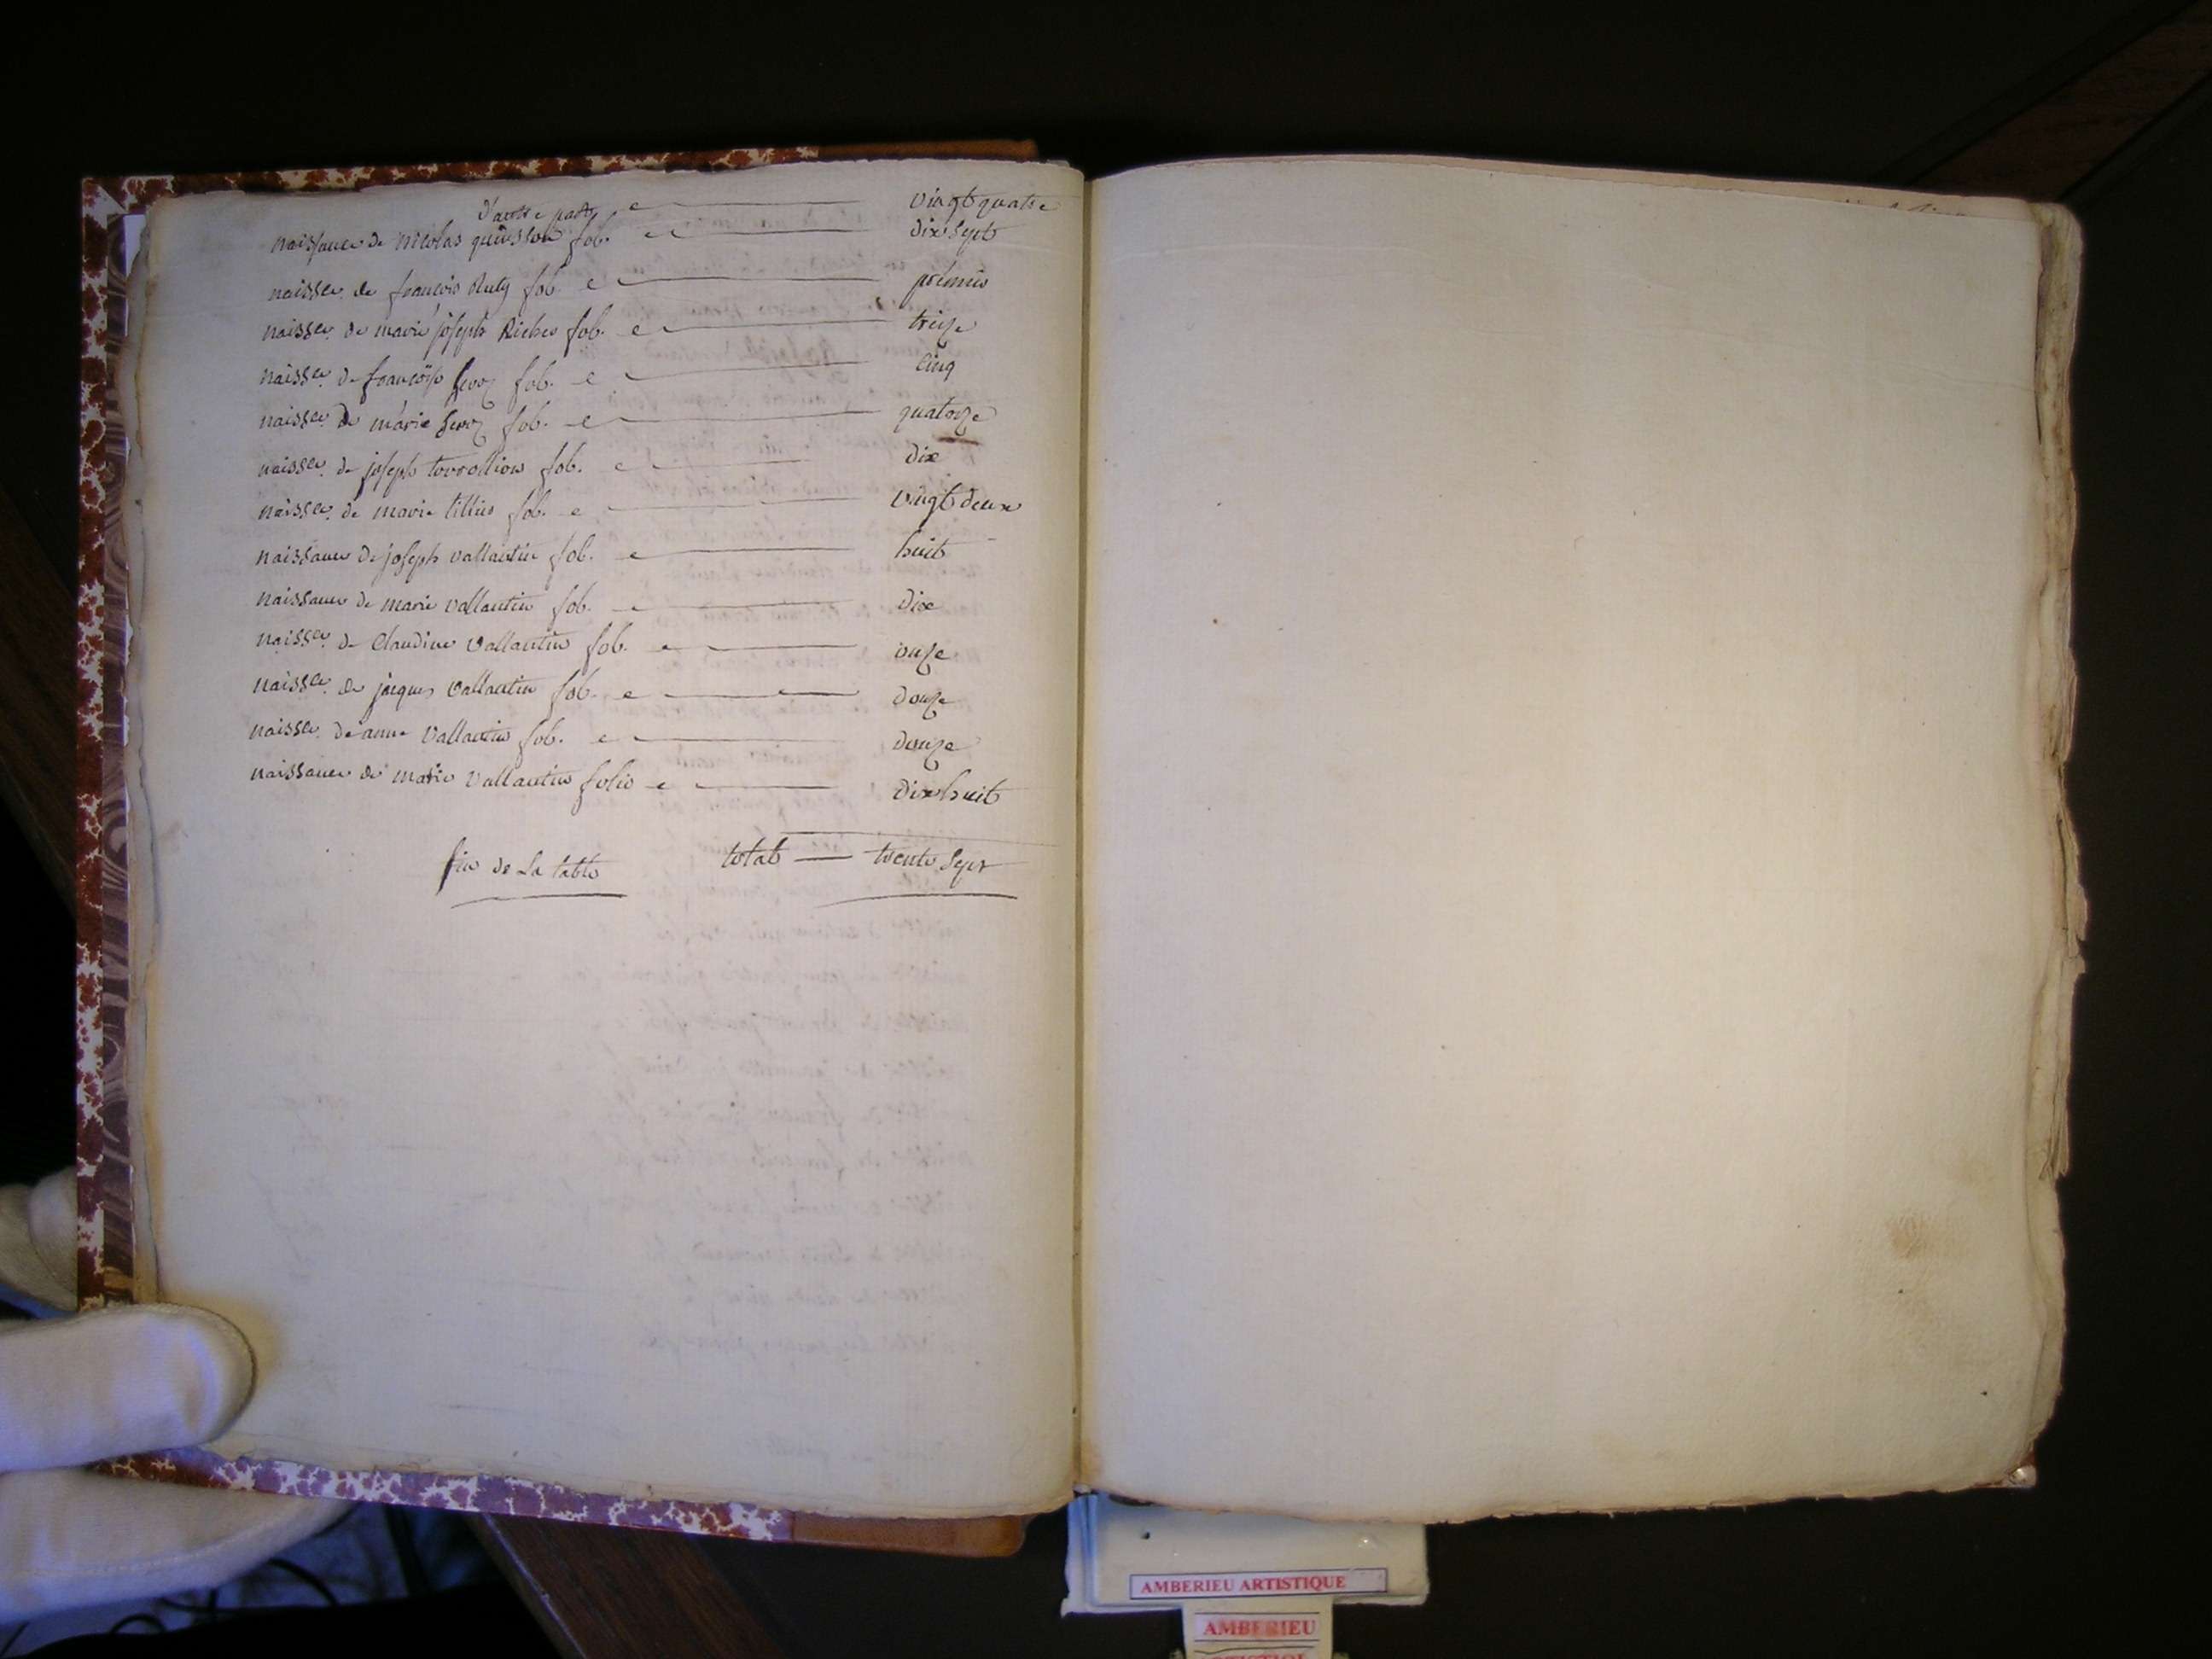 d'autre part e — vingt quatre
naissance de nicolas quinson fol. e — dix sept
naissce. de francois Ruty fol. e — premier
naissce. de marie joseph Riches fol. e — treize
naissce. de francoise Seroz fol. e — cinq
naissce. de marie Seroz fol. e — quatorze
naissce. de joseph fol. e — dix
naissce. de marie fol. e — vingt deux
naissance de joseph vallantin fol. e — huit
naissance de marie vallantin fol. e — dix
naissce. de Claudine Vallantin fol. e — onze
naissce. de jacques Vallantin fol. e — douze
naissce. de anne Vallantin fol. e — douze
naissance de marie Vallantin folio e — dix huit
fin de La table total — trente Sept
AMBERIEU ARTISTIQUE
AMBERIEU